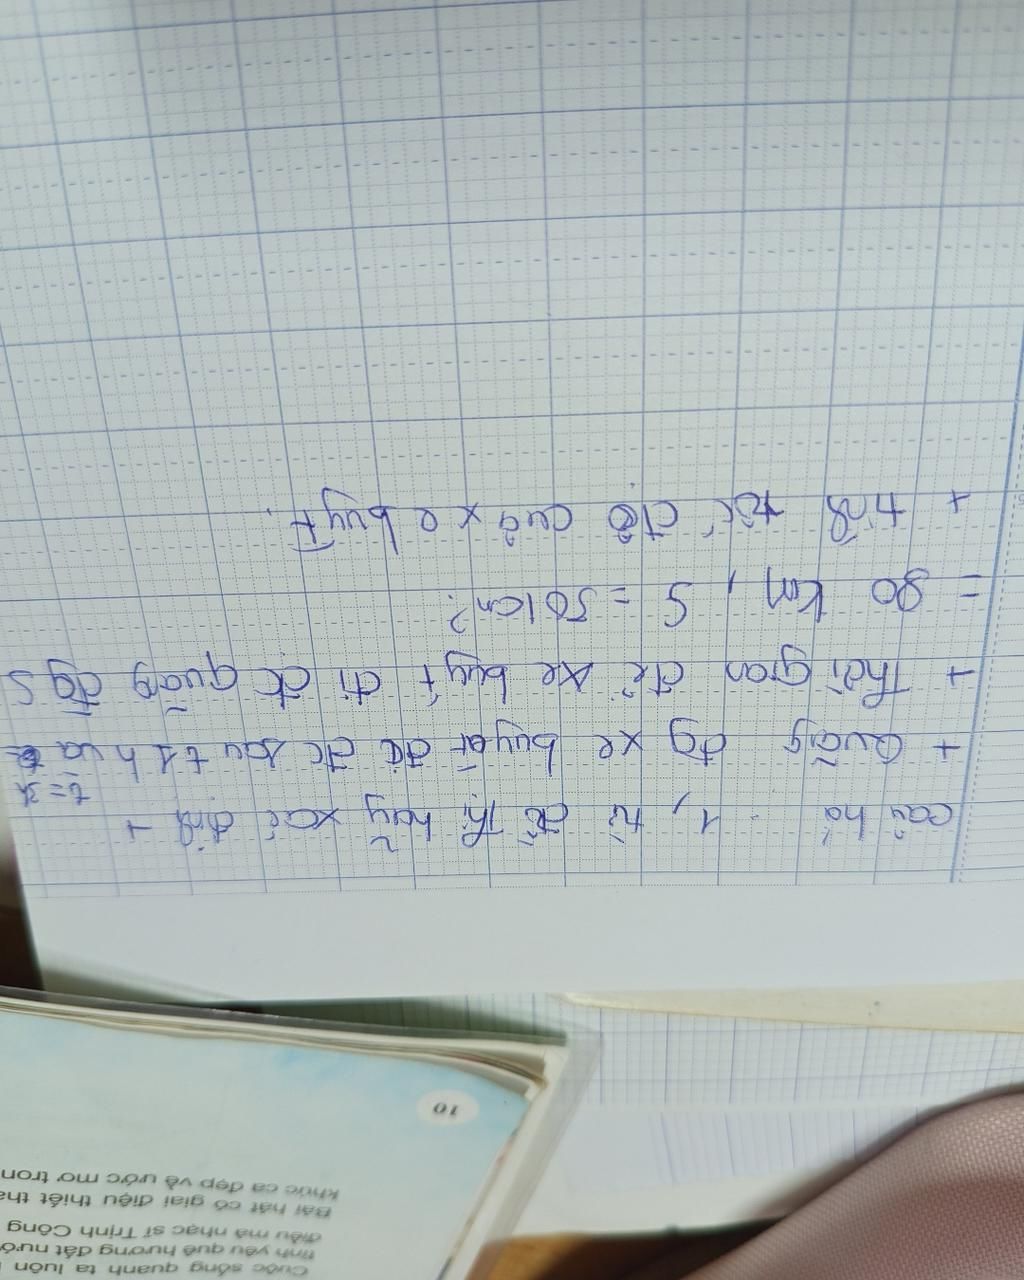 câu hỏ 1, từ đồ thị hãy xác định +
t = 3h
+ Quãng đg xe buýt đi đc sau t 1 h và
+ Thời gian để xe buýt đi đc quãng đg S
= 80 km, S = 50 km?
+ tính tốc độ của xe buýt.
10
Cuộc sống quanh ta luôn
tình yêu quê hương đất nướ
điệu mà nhạc sĩ Trịnh Công
Bài hát có giai điệu thiết tha
khúc ca đẹp về ước mơ tron